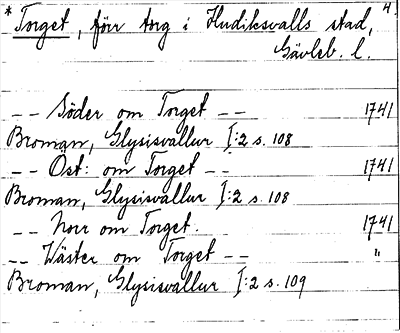 4.
* Torget, förr torg i Hudiksvalls stad,
Gävleb. l.
-- Söder om Torget -- 1741
Broman, Glysisvallur I:2 s. 108
-- Öst: om Torget -- 1741
Broman, Glysisvallur I:2 s. 108
-- Norr om Torget. 1741
-- Wäster om Torget -- "
Broman, Glysisvallur I:2 s. 109